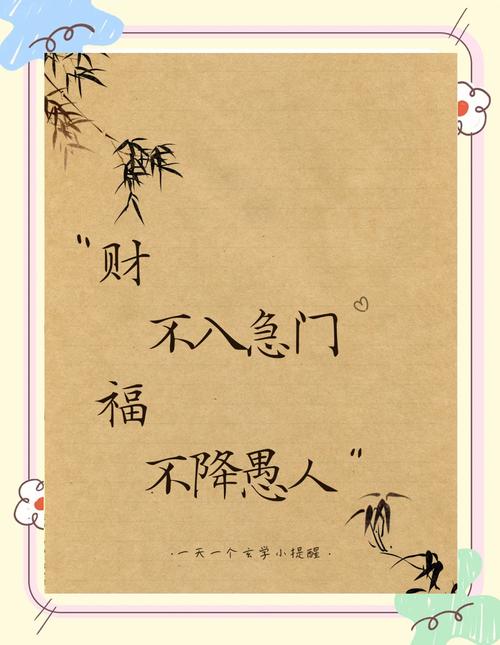 “财
不入急门
福
不降愚人”
·一天一个玄学小提醒·